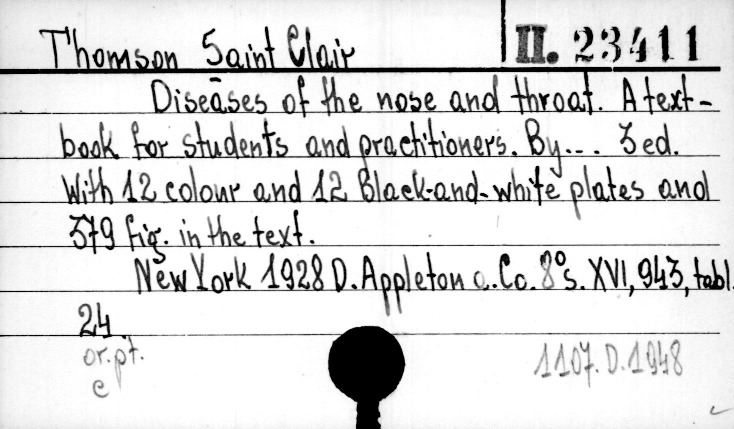 Thomson Saint Clair II. 23411
Diseases of the nose and throat. A text-
book for students and practitioners. By... 3 ed.
With 12 colour and 12 Black-and-white plates and
379 fig. in the text.
New York 1928 D. Appleton a. Co. 8° s. XVI, 943, tabl.
24.
or. pt.
e
1107. D. 1948